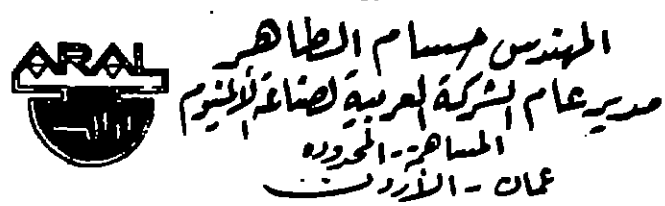 ARAL
المهندس حسام الطاهر
مدير عام الشركة العربية لصناعة الألمنيوم
المساهمة - المحدودة
عمان - الأردن